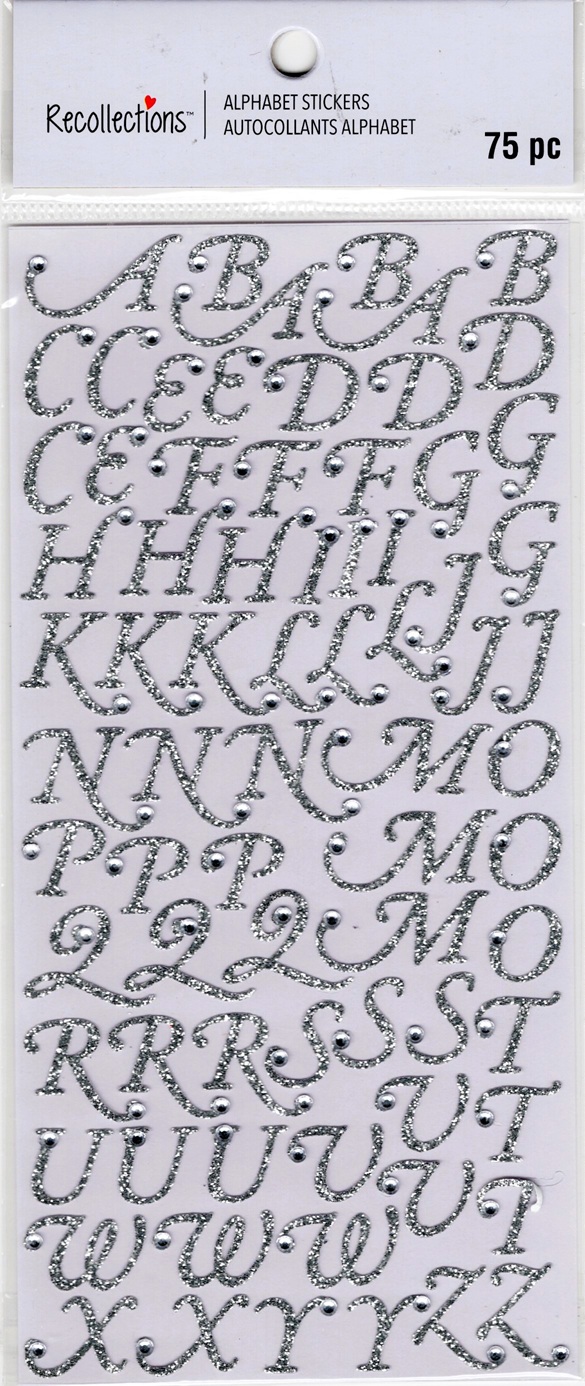 Recollections™
ALPHABET STICKERS
AUTOCOLLANTS ALPHABET
75 pc
A B B B
A A
C C E E D D D
C E F F F G G
H H H I I I G
K K K L L L J J J
N N N M O
P P P M O
Q Q Q M O
R R R S S S T
U U U V V V T
W W W T
X X Y Y Z Z